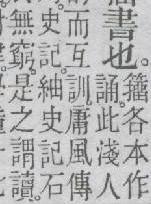 書也。籀各本作
誦。此淺人
而互訓。庸風傳
史記。紬史記石
無窮。是之謂讀。